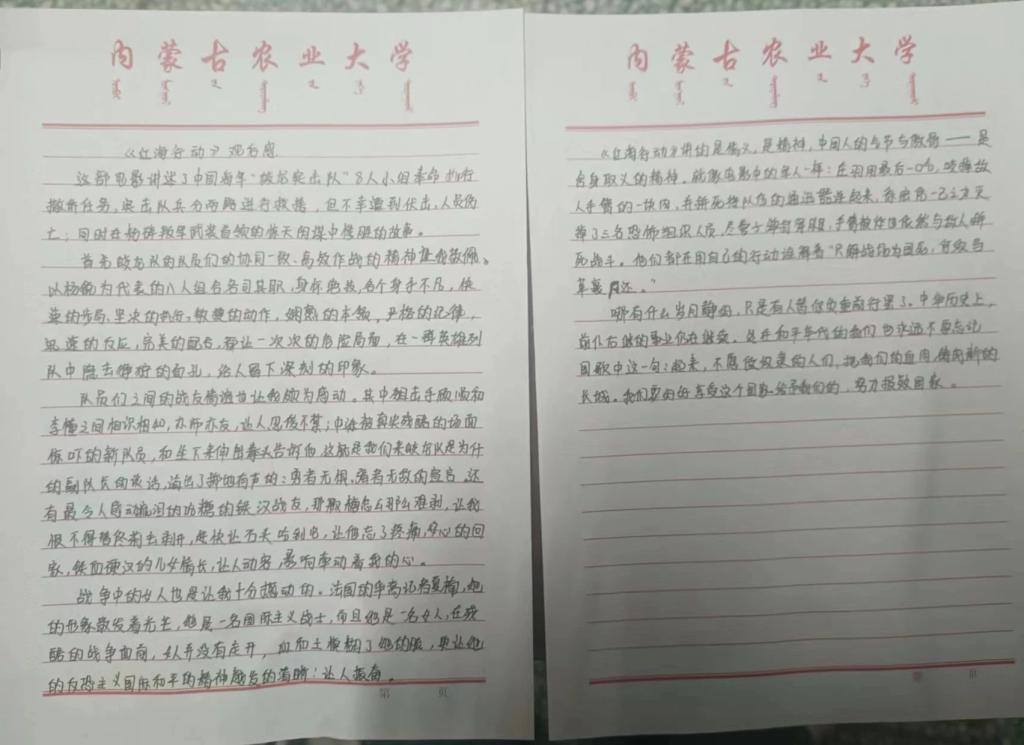 内蒙古农业大学
《红海行动》观后感
这部电影讲述了中国海军“蛟龙突击队”8人小组奉命执行
撤侨任务,突击队兵分两路进行救援,但不幸遭到伏击,人员伤
亡;同时在粉碎叛军武装首领的惊天阴谋中惊险的故事。
首先蛟龙队的队员们的协同一致、高效作战的精神让我敬佩。
以杨锐为代表的八人组各名司其职,身怀绝技,各个身手不凡,快
速的步局、坚决的执行、敏捷的动作、娴熟的本领、严格的纪律,
迅速的反应,完美的配合,都让一次次的危险局面,在一群英雄列
队中隐去狰狞的面孔,给人留下深刻的印象。
队员们之间的战友情谊也让我颇为感动。其中狙击手顾顺和
李懂之间相识相知,亦师亦友,让人忍俊不禁;中途被真实残酷的场面
惊吓的新队员,和坐下来伸出拳头告诉他,这就是我们来蛟龙队是为什
的副队长的谈话,道出了掷地有声的:勇者无惧,勇者无敌的誓言。还
有最令人感动流泪的功糖的铁汉战友,那颗糖怎么那么难剥,让我
恨不得替佟莉去剥开,赶快让石头吃到它,让他忘了疼痛,安心的回
家,铁血硬汉的儿女情长,让人动容,影响牵动着我的心。
战争中的女人也是让我十分撼动的。法国的华裔记者夏楠,她
的形象散发着光芒,她是一名国际主义战士,而且她是一名女人,在残
酷的战争面前,从并没有走开,血和土模糊了她的脸,更让她
的反恐主义国际和平的精神越发的清晰:让人振奋。
第 页
内蒙古农业大学
《红海行动》讲的是信义,是精神,中国人的气节与傲骨——是
舍身取义的精神。就像电影中的军人一样:在羽用最后一口气,咬掉敌
人手臂的一块肉,并拼死将队伍的通讯器连起来,
掉了三名恐怖组织人员,尽管子弹打穿腿,手臂被炸但依然与敌人拼
死战斗。他们都在用自己的行动诠释着“只解战场为国死,何须马
革裹尸还。”
哪有什么岁月静好,只是有人替你负重前行罢了。中华历史上,
前仆后继的事业仍在继续。处在和平年代的我们也永远不要忘记
国歌中这一句:起来,不愿做奴隶的人们,把我们的血肉,铸成新的
长城。我们要好好享受这个国家给予我们的,努力报效国家。
第 页